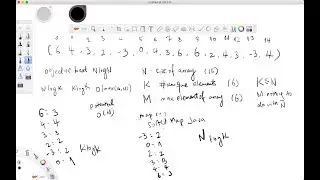 0 1 2 3 4 5 6 7 8 9 10 11 12 13 14
( 6 4, 3, 2, -3, 0, 4, 3, 6, 6, 2, 4, 3, -3, 4 )
Objective beat NlogN
N size of array (15)
NlogK KlogK O(max(N,M))
K # unique elements (6) K≤N
M max element of array (6) M nothing to do with N
6: 3
4: 4
3: 3
2: 2
-3: 2
0: 1
KlogK
O(N)
map
sorted map Java
-3: 2
0: 1
2: 2
3: 3
4: 4
6: 3
N logK